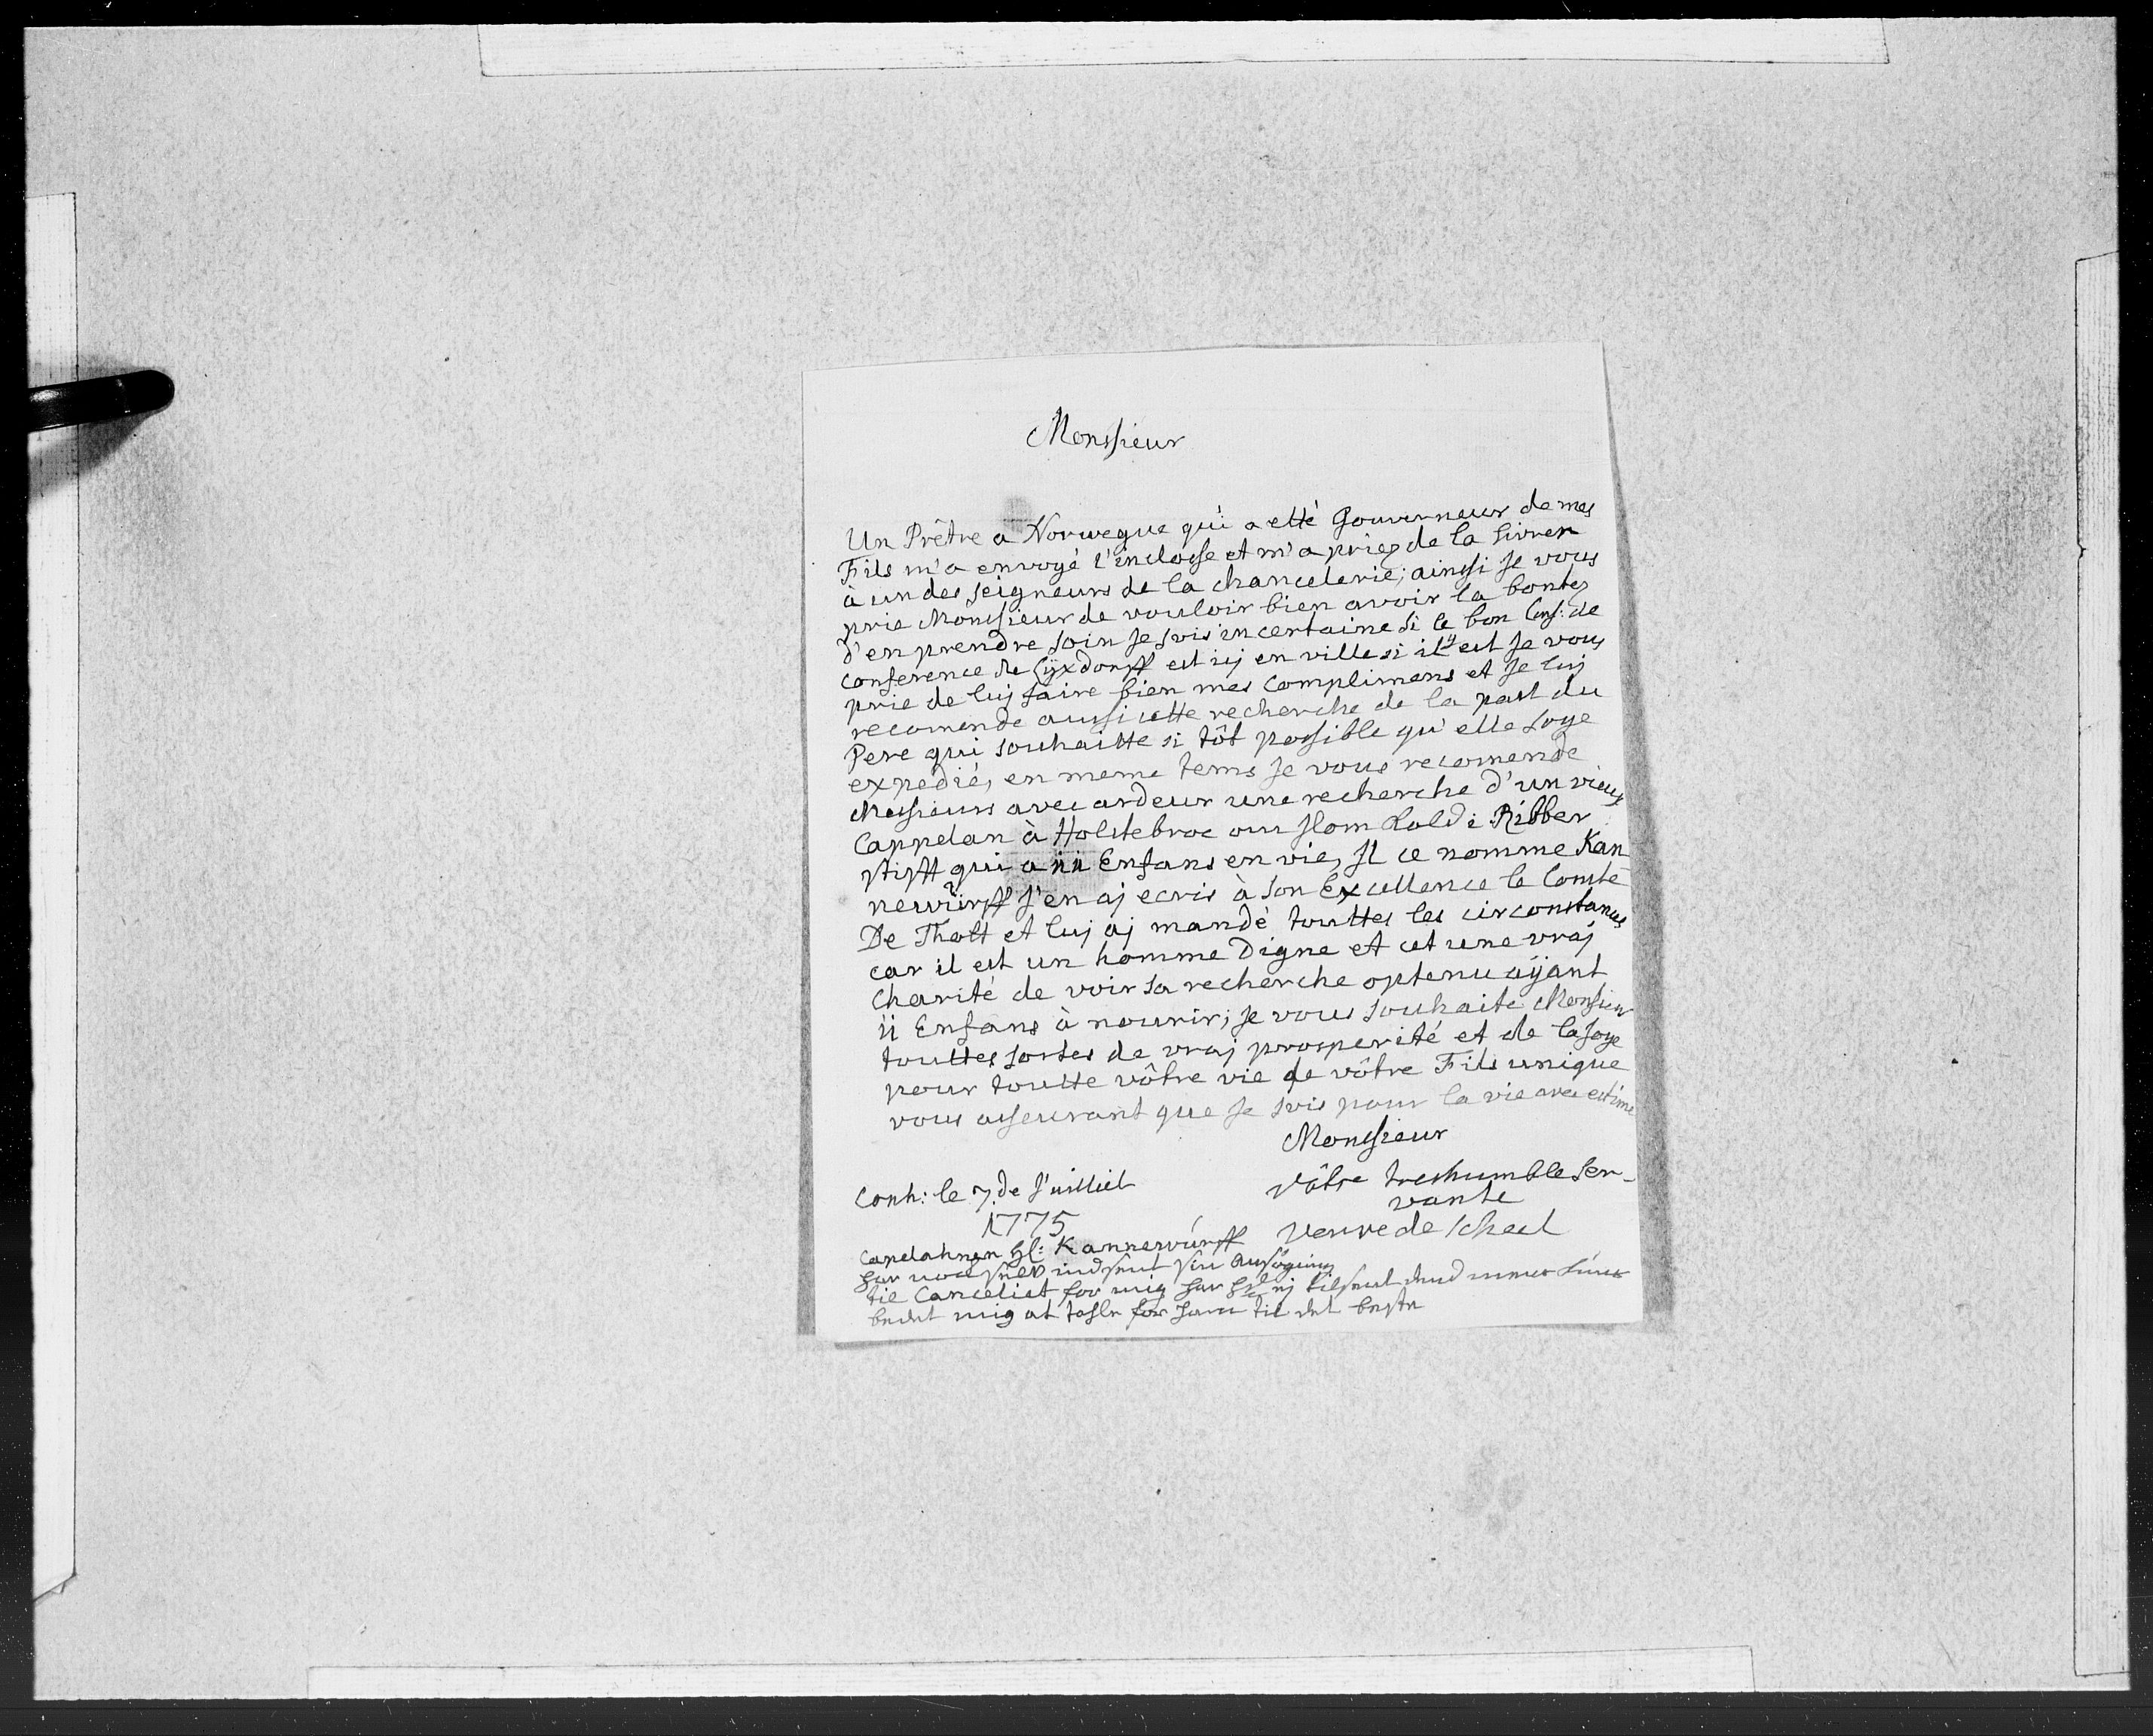 Monsieur
Un Prêtre a Norwegue qui a etté Gouverneur de mes
Fils m'a envoyé l'inclose et m'a priez de la livrer
à un des seigneurs de la chancelerie; ainsi je vous
prie Monsieur de vouloir bien avoir la bontez
d'en prendre soin je suis incertaine si le bon Cons: de
conference de Lÿxdorff est icj en ville si il y est je vous
prie de luj faire bien mes complimens et je luj
recomende aussi cette recherche de la part du
Pere qui souhaitte si tôt possible qu'elle soye
expedié, en meme tems je vous recomende
Messieurs avec ardeur une recherche d'un vieux
Cappelan à Holstebroe ou Hom i Ribber
stifft qui a 11 Enfans en vie, Il ce nomme Kan
newürff j'en aj ecris à son Excellence le Comte
De Thott et luj aj mandé touttes les circonstances
car il est un homme Digne et cet une vraj
charité de voir sa recherche optenu aÿant
11 Enfans à nourir; je vous souhaite Monsieur
touttes sortes de vraj prosperité et de la joye
pour toutte vôtre vie de vôtre Fils unique
vous asseurant que je suis pour la vie avec estime
Monsieur
Conh: le 7. de Juilliet
vôtre treshumble Ser-
vante
1775
Veuve de Scheel
Capelahnen Hl: Kannewürff
har selv indsent sin Ansögning
til Canceliet for mig har tilsent
bedet mig at tahle for ham til det beste